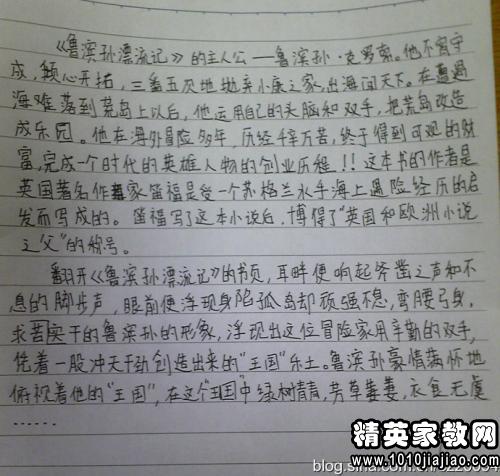 《鲁滨孙漂流记》的主人公——鲁滨孙·克罗索。他不安守
成，倾心开拓，三番五次地抛弃小康之家，出海闯天下。在遭遇
海难落到荒岛上以后，他运用自己的头脑和双手，把荒岛改造
成乐园。他在海外冒险多年，历经千辛万苦，终于得到可观的财
富，完成一个时代的英雄人物的创业历程！！这本书的作者是
英国著名作家笛福是受一个苏格兰水手海上遇险经历的启
发而写成的。笛福写了这本小说后，博得了“英国和欧洲小说
之父”的称号。
翻开《鲁滨孙漂流记》的书页，耳畔便响起斧凿之声和不
息的脚步声，眼前便浮现身陷孤岛却顽强不息，弯腰弓身，
求苦实干的鲁滨孙的形象，浮现出这位冒险家用辛勤的双手，
凭着一股冲天干劲创造出来的“王国”乐土。鲁滨孙豪情满怀地
俯视着他的“王国”，在这个“王国”中绿树青青，芳草萋萋，衣食无虞
……
精英家教网
www.1010jiajiao.com